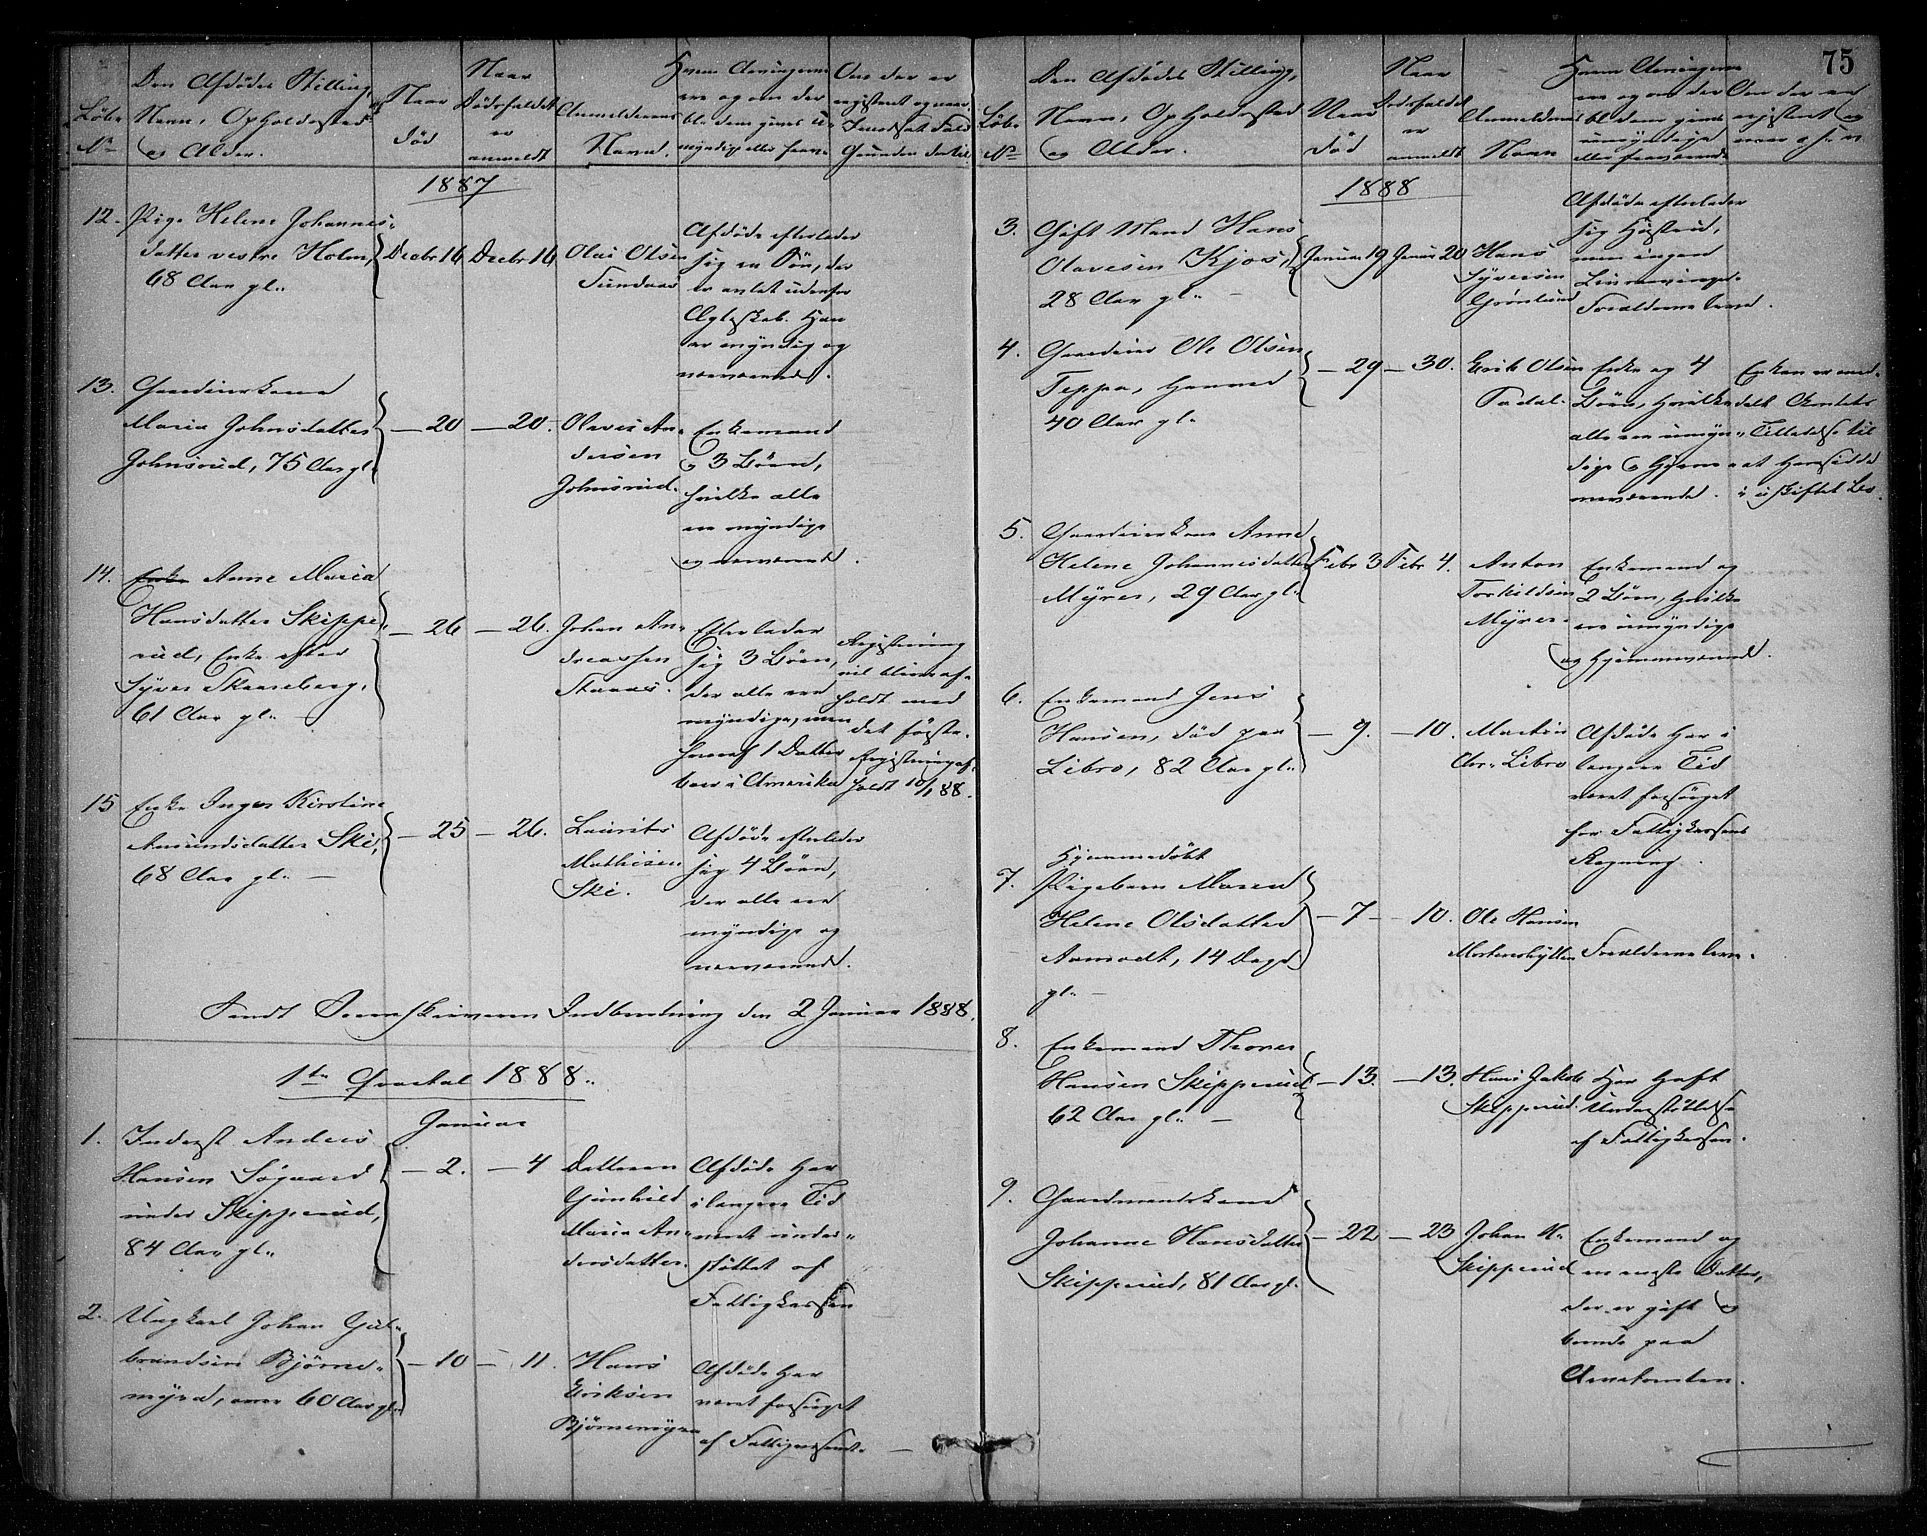 75
Løbe
No
Den Afdødes Stilling,
Navn, Opholdssted
og Alder.
Naar
død
Naar
Dødsfaldet
er
anmeldt
Anmelderens
Navn.
Hvem Arvingerne
ere og om der
bl. dem gives u-
myndige eller frav.
Om der er
registreret og
1887
12. Pige Helene Johannes-
datter vestre Holm,
68 Aar gl.
Decbr 16
Decbr 16
Olai Olsen
Afdøde efterlader
sig en Søn, der
er avlet udenfor
Ægteskab. Han
er myndig og
nærværende.
13. Gaardeierkone
Maria Johnsdatter
Johnsrud, 75 Aar gl.
— 20
— 20.
Olaves An-
dersen
Johnsrud.
Enkemand
og 3 Børn,
hvilke alle
ere myndige
og nærværende.
14. Enke Anne Maria
Hansdatter Skippe-
rud, Enke efter
Syver Skaaneberg,
61 Aar gl.
— 26
— 26.
Johan An-
dreassen
Efterlader
sig 3 Børn,
der alle ere
myndige, men
hvoraf 1 Datter
bor i Amerika
Registrering
vil blive af-
holdt med
det første.
Registrering af-
holdt 10/1 88.
15 Enke Inger Kirstine
Amundsdatter Ski,
68 Aar gl. —
— 25
— 26.
Laurits
Mathisen
Ski.
Afdøde efterlader
sig 4 Børn,
der alle ere
myndige og
nærværende.
Sendt Sorenskriveren Indberetning den 2 Januar 1888.
1ste Qvartal 1888.
Januar
1. Inderst Anders
Hansen Søgaard
under Skipperud,
84 Aar gl.
— 2.
— 4
Datteren
Gunhild
Maria An-
dersdatter.
Afdøde har
i længere Tid
været under-
støttet af
Fattigkassen
2. Ungkarl Johan Gul-
brandsen Bjørne-
myra, over 60 Aar gl.
— 10
— 11.
Hans
Eriksen
Bjørnemyra
Afdøde har
været forsørget
af Fattigvæsenet. —
Løbe
No
Den Afdødes Stilling,
Navn, Opholdssted
og Alder.
Naar
død
Naar
Dødsfaldet
er
anmeldt
Anmelderens
Navn
Hvem Arvingerne
ere og om der
bl. dem gives
umyndige
eller fraværende
Om der er
registreret og
1888
3. Gift Mand Hans
Olavesen Kjos,
28 Aar gl. —
Januar 19
Januar 20
Hans
Syversen
Grønlund
Afdøde efterlader
sig Hustru,
men ingen
Livsarvinger.
Forældrene leve.
4. Gaardeier Ole Olsen
Teppa,
40 Aar gl.
— 29
— 30.
Erik Olsen
Enke og 4
Børn, hvilke
alle ere umyn-
dige og hjemme-
nærværende.
Enken er med-
delt Amtets
Tilladelse til
at hensidde
i uskiftet Bo.
5. Gaardeierkone Anne
Helene Johannesdatter
Myrer, 29 Aar gl.
Febr 3
Febr 4.
Anton
Torkildsen
Myrer.
Enkemand og
2 Børn, hvilke
ere umyndige
og hjemmeværende.
6. Enkemand Jens
Hansen, død paa
Libro, 82 Aar gl.
— 9.
— 10.
Martin
Chr. Libro
Afdøde har i
længere Tid
været forsørget
for Fattigkassens
Regning.
Hjemmedøbt
7. Pigebarn Maren
Helene Olsdatter
Aamodt, 14 Dage
gl. —
— 7
— 10.
Ole Hansen
Mortenshytten
Forældrene leve.
8. Enkemand Thorer
Hansen Skipperud
62 Aar gl. —
— 13.
— 13.
Hans Jakob
Skipperud.
Har havt
Understøttelse
af Fattigkassen.
9. Gaardmandskone
Johanne Hansdatter
Skipperud, 81 Aar gl.
— 22
— 23
Johan H.
Skipperud
Enkemand og
en eneste Datter,
der er gift og
boende paa